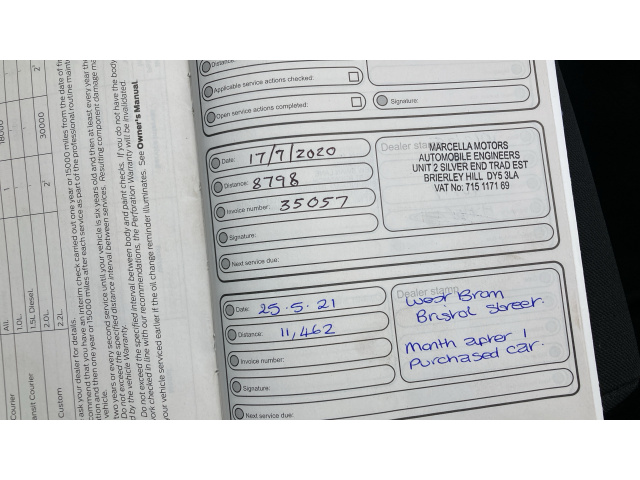 Distance:
Applicable service actions checked:
Open service actions completed:
Signature:
Date: 17/7/2020
Distance: 8798
Invoice number: 35057
Signature:
Next service due:
Dealer stamp
MARCELLA MOTORS
AUTOMOBILE ENGINEERS
UNIT 2 SILVER END TRAD EST
BRIERLEY HILL DY5 3LA
VAT No: 715 1171 69
Date: 25.5.21
Distance: 11,462
Invoice number:
Signature:
Next service due:
Dealer stamp
West Brom
Bristol Street.
Month after I
Purchased car.
18000
30000
2
1
2
All
1.0L
1.5L Diesel
2.0L
2.2L
Courier
ansit Courier
Custom
ask your dealer for details.
commend that you have an interim check carried out one year or 15000 miles from the date of fir
ation and then one year or 15000 miles after each service as part of the professional routine maint
vehicle.
two years or every second service until your vehicle is six years old and then at least every year the
Do not exceed the specified distance interval between services. Resulting component damage ma
d by the vehicle Warranty.
Do not exceed the specified interval between body and paint checks. If you do not have the body
ork checked in line with our recommendations, the Perforation Warranty will be invalidated.
your vehicle serviced earlier if the oil change reminder illuminates. See Owner's Manual.